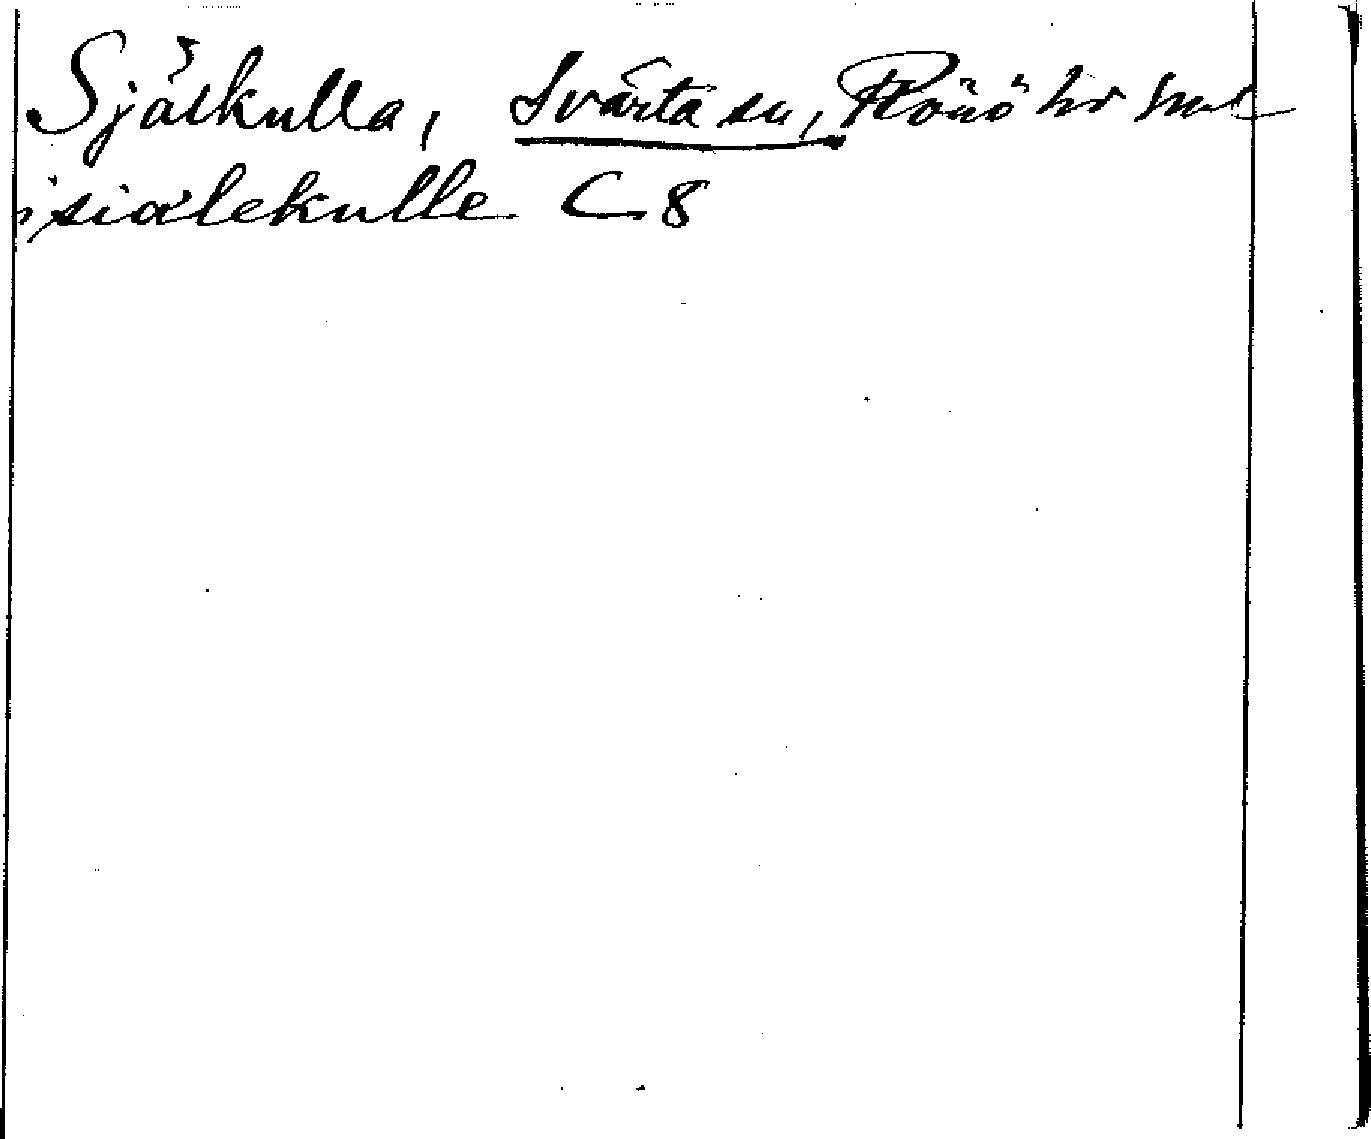 Sjålkulla, Svärta sn, Rönö hd Sml
i sialekulle C 8